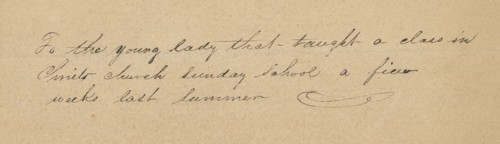 To the young lady that taught a class in
Christs church Sunday School a few
weeks last summer